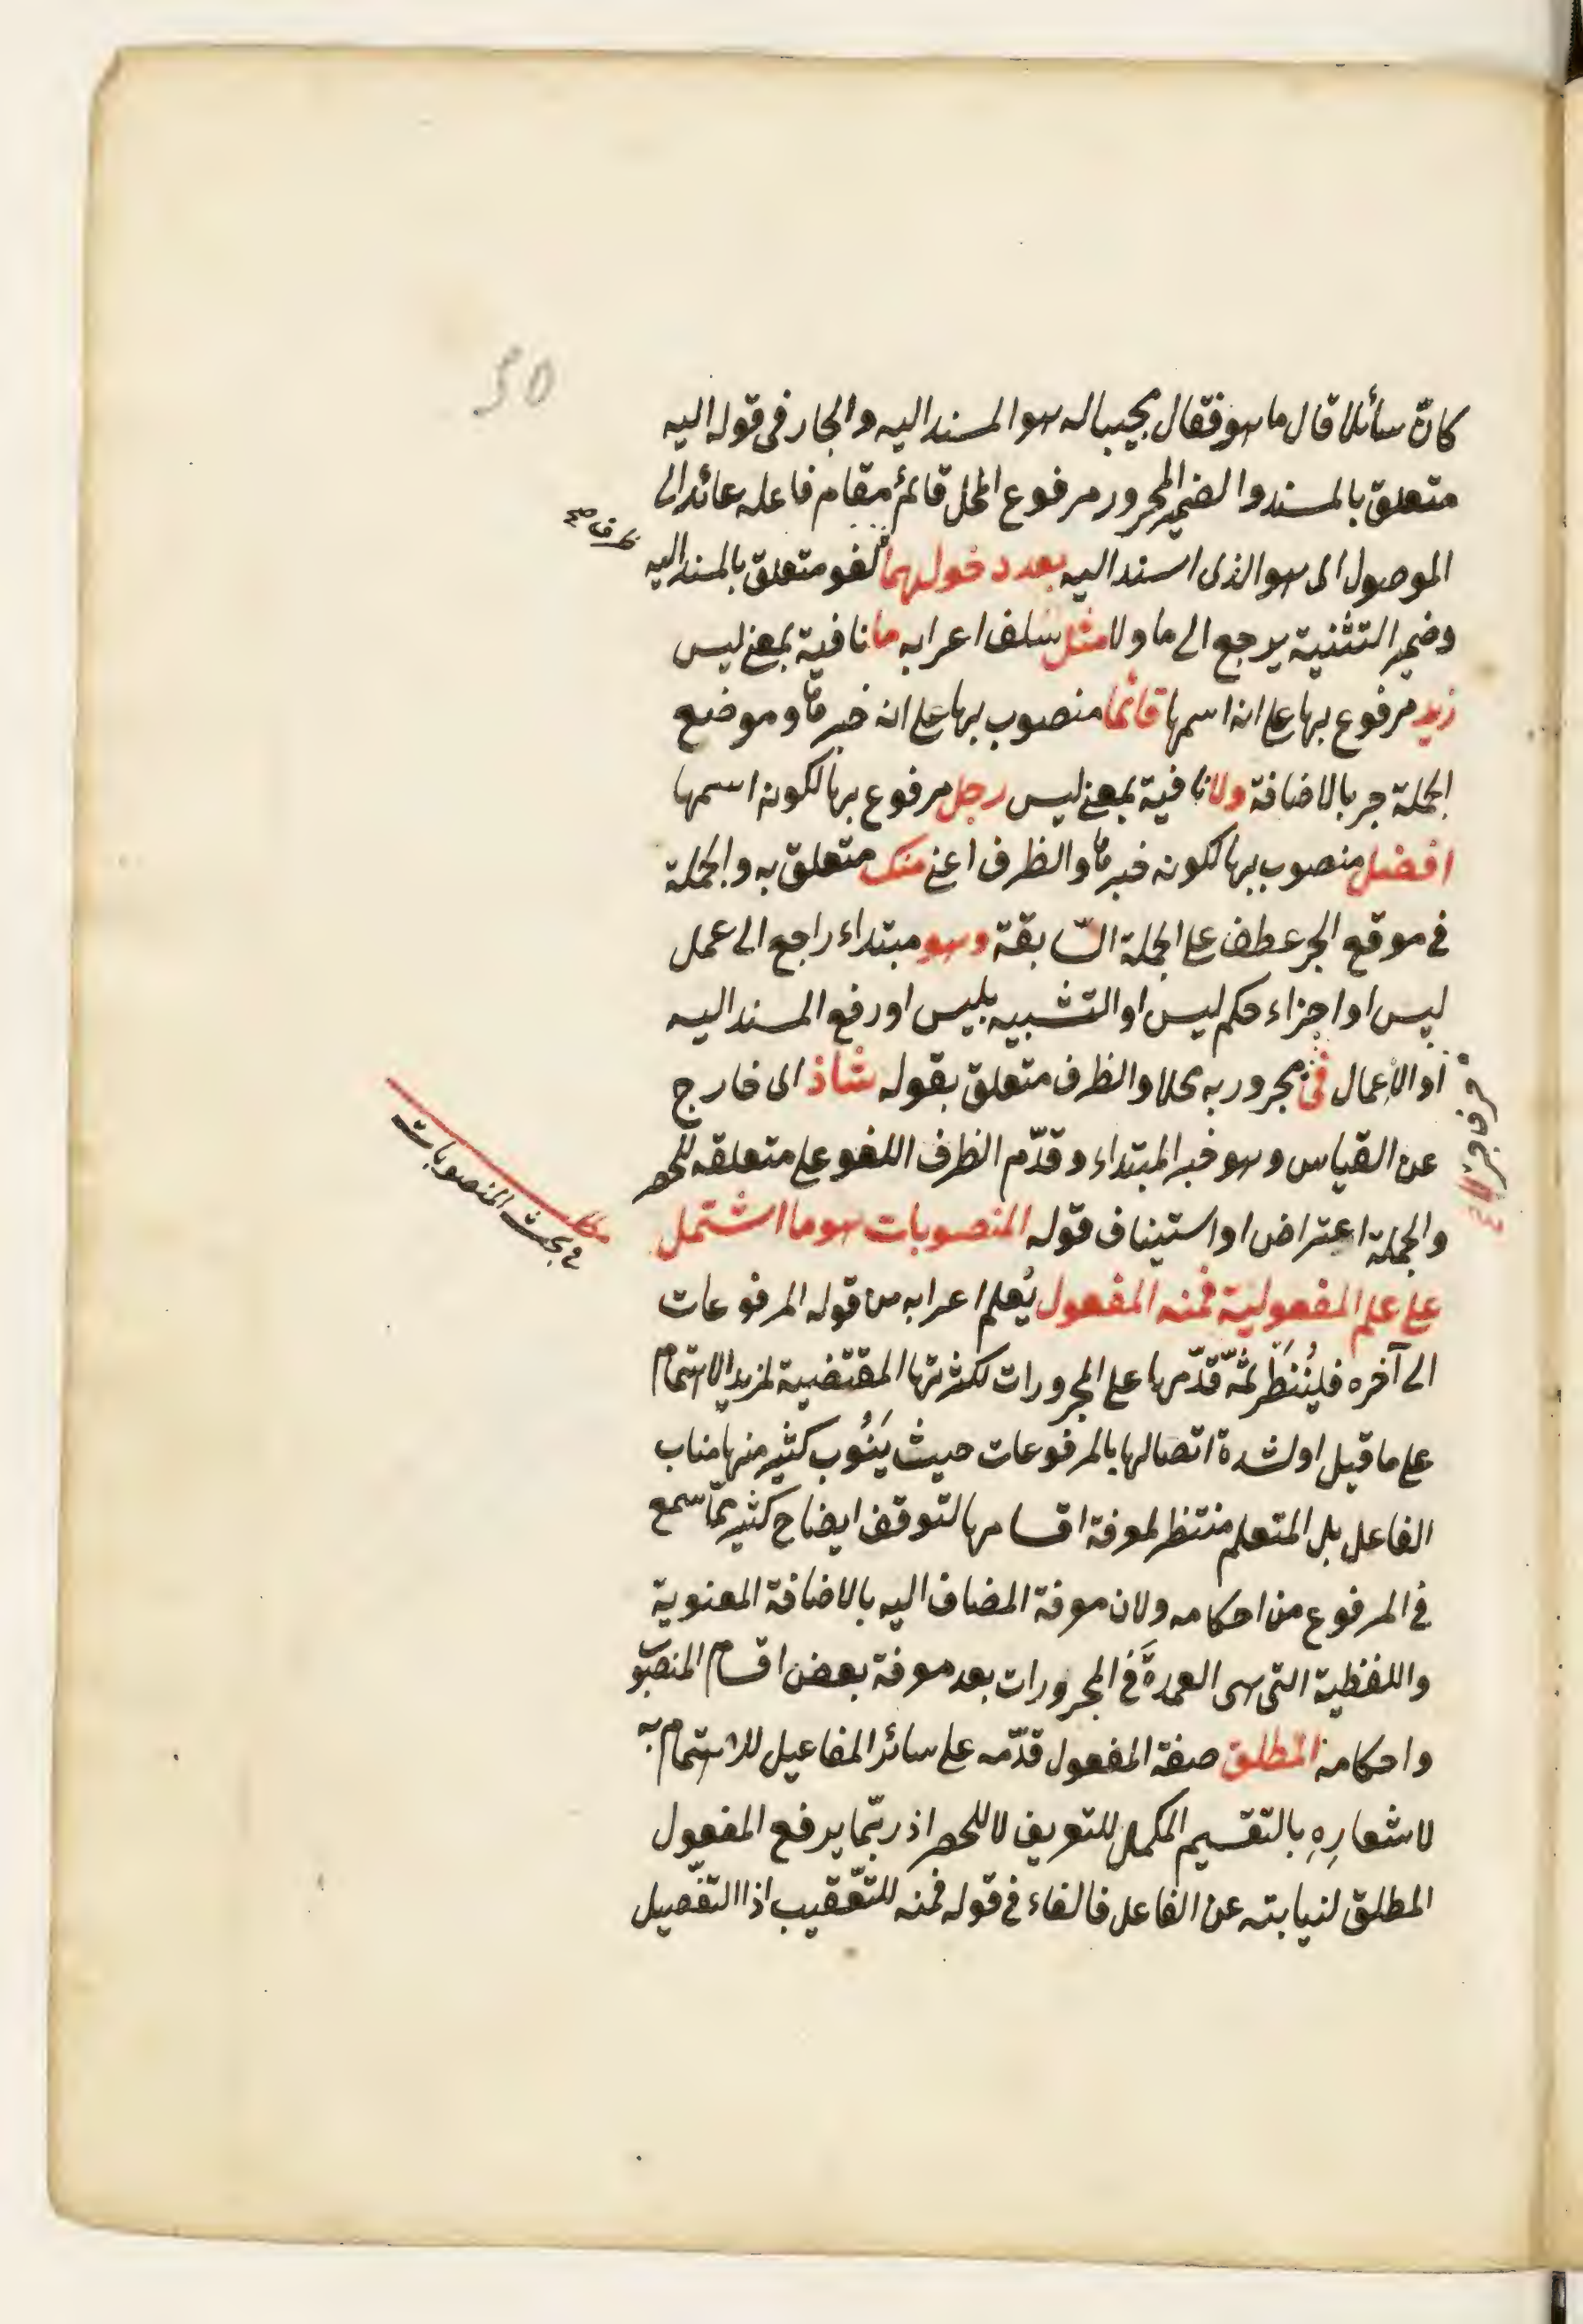 50
كانّ سائلا قال ما هو فقال مجيبا له هو المسند اليه والجار فى قوله اليه
متعلق بالمسند والضمير المجرور مرفوع المحل قائم مقام فاعله عائد الى
الموصول اى هو الذى اسند اليه بعد دخولهما لغو متعلق بالمسند اليه
وضمير التثنية يرجع الى ما ولا مثل سلف اعرابه ما نافية بمعنى ليس
زيد مرفوع بها على انه اسمها قائما منصوب بها على انه خبرها وموضع
الجملة جر بالاضافة ولا نافية بمعنى ليس رجل مرفوع بها لكونه اسمها
افضل منصوب بها لكونه خبرها والظرف اعنى منك متعلق به والجملة
فى موقع الجر عطف على الجملة السّابقة وهو مبتداء راجع الى عمل
ليس او اجزاء حكم ليس او التشبيه بليس او رفع المسند اليه
او الاعمال فى مجرور به محلا والظرف متعلق بقوله شاذ اى خارج
عن القياس وهو خبر المبتداء وقدّم الظرف اللغو على متعلقه للحصر
والجملة اعتراض او استيناف قوله المنصوبات هو ما اشتمل
فى بحث المنصوبات
على علم المفعولية فمنه المفعول يُعلم اعرابه من قوله المرفوعات
الى آخره فليُنظَر ثمّه قدّمها على المجرورات لكثرتها المقتضية لمزيد الاهتمام
على ما قيل او لشدة اتصالها بالمرفوعات حيث يَنُوب كثير منها مناب
الفاعل بل المتعلم منتظر لمعرفة اقسامها لتوقف ايضاح كثير ممّا سمع
فى المرفوع من احكامه ولان معرفة المضاف اليه بالاضافة المعنوية
واللفظية التى هى العمدةَ فى المجرورات بعد معرفة بعض اقسام المنصوب
واحكامه المطلق صفة المفعول قدّمه على سائر المفاعيل للاهتمام به
لاشعارِهِ بالتقسيم المكمل للتعريف لا للحصر اذ ربّما يرفع المفعول
المطلق لنيابته عن الفاعل فالفاء فى قوله فمنه للتّعقيب اذا التفصيل